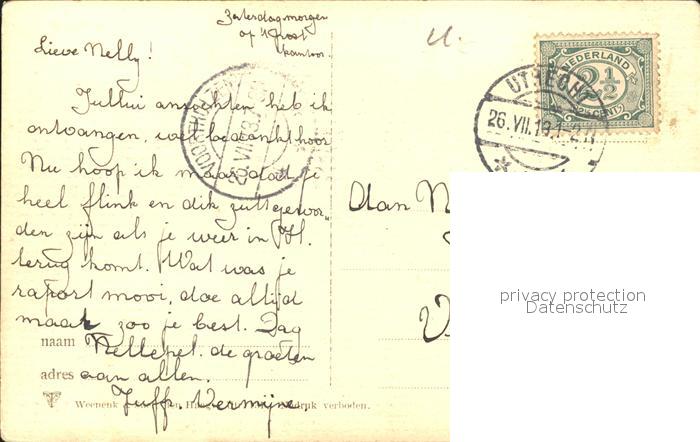 Zaterdagmorgen
op 't Post
kantoor.
Lieve Nelly!
Jullui ansichten heb ik
ontvangen, wel bedankt hoor
Nu hoop ik maar dat je
heel flink en dik zult gewor-
den zijn als je weer in H.
terug komt. Wat was je
raport mooi, doe altijd
maar zoo je best. Dag
Nellepel. de groeten
aan allen.
Juffr. Vermijne.
naam
adres
Weenenk
verboden.
NEDERLAND
2½
CENT
UTRECHT
26.VII.19.1-2.N
VOORTHUIZEN
26.VII.19
Aan N
V
privacy protection
Datenschutz